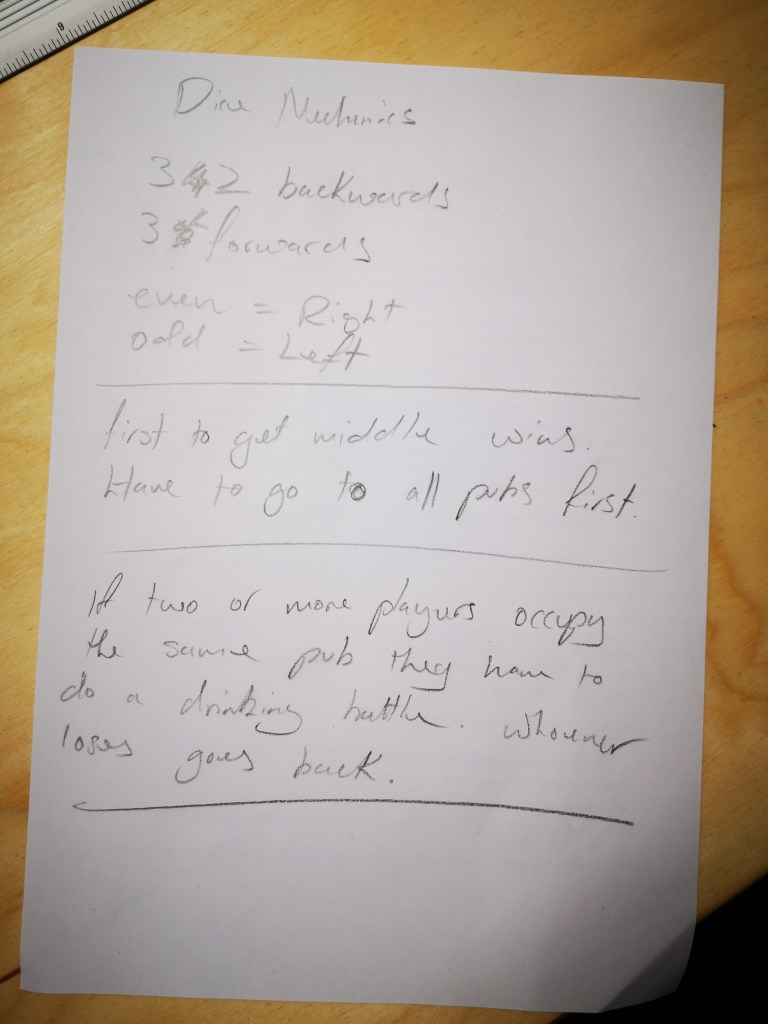 Dice Mechanics
3 2 backwards
3 forwards
even = Right
odd = Left
first to get middle wins.
Have to go to all pubs first.
If two or more players occupy
the same pub they have to
do a drinking battle. Whoever
loses goes back.